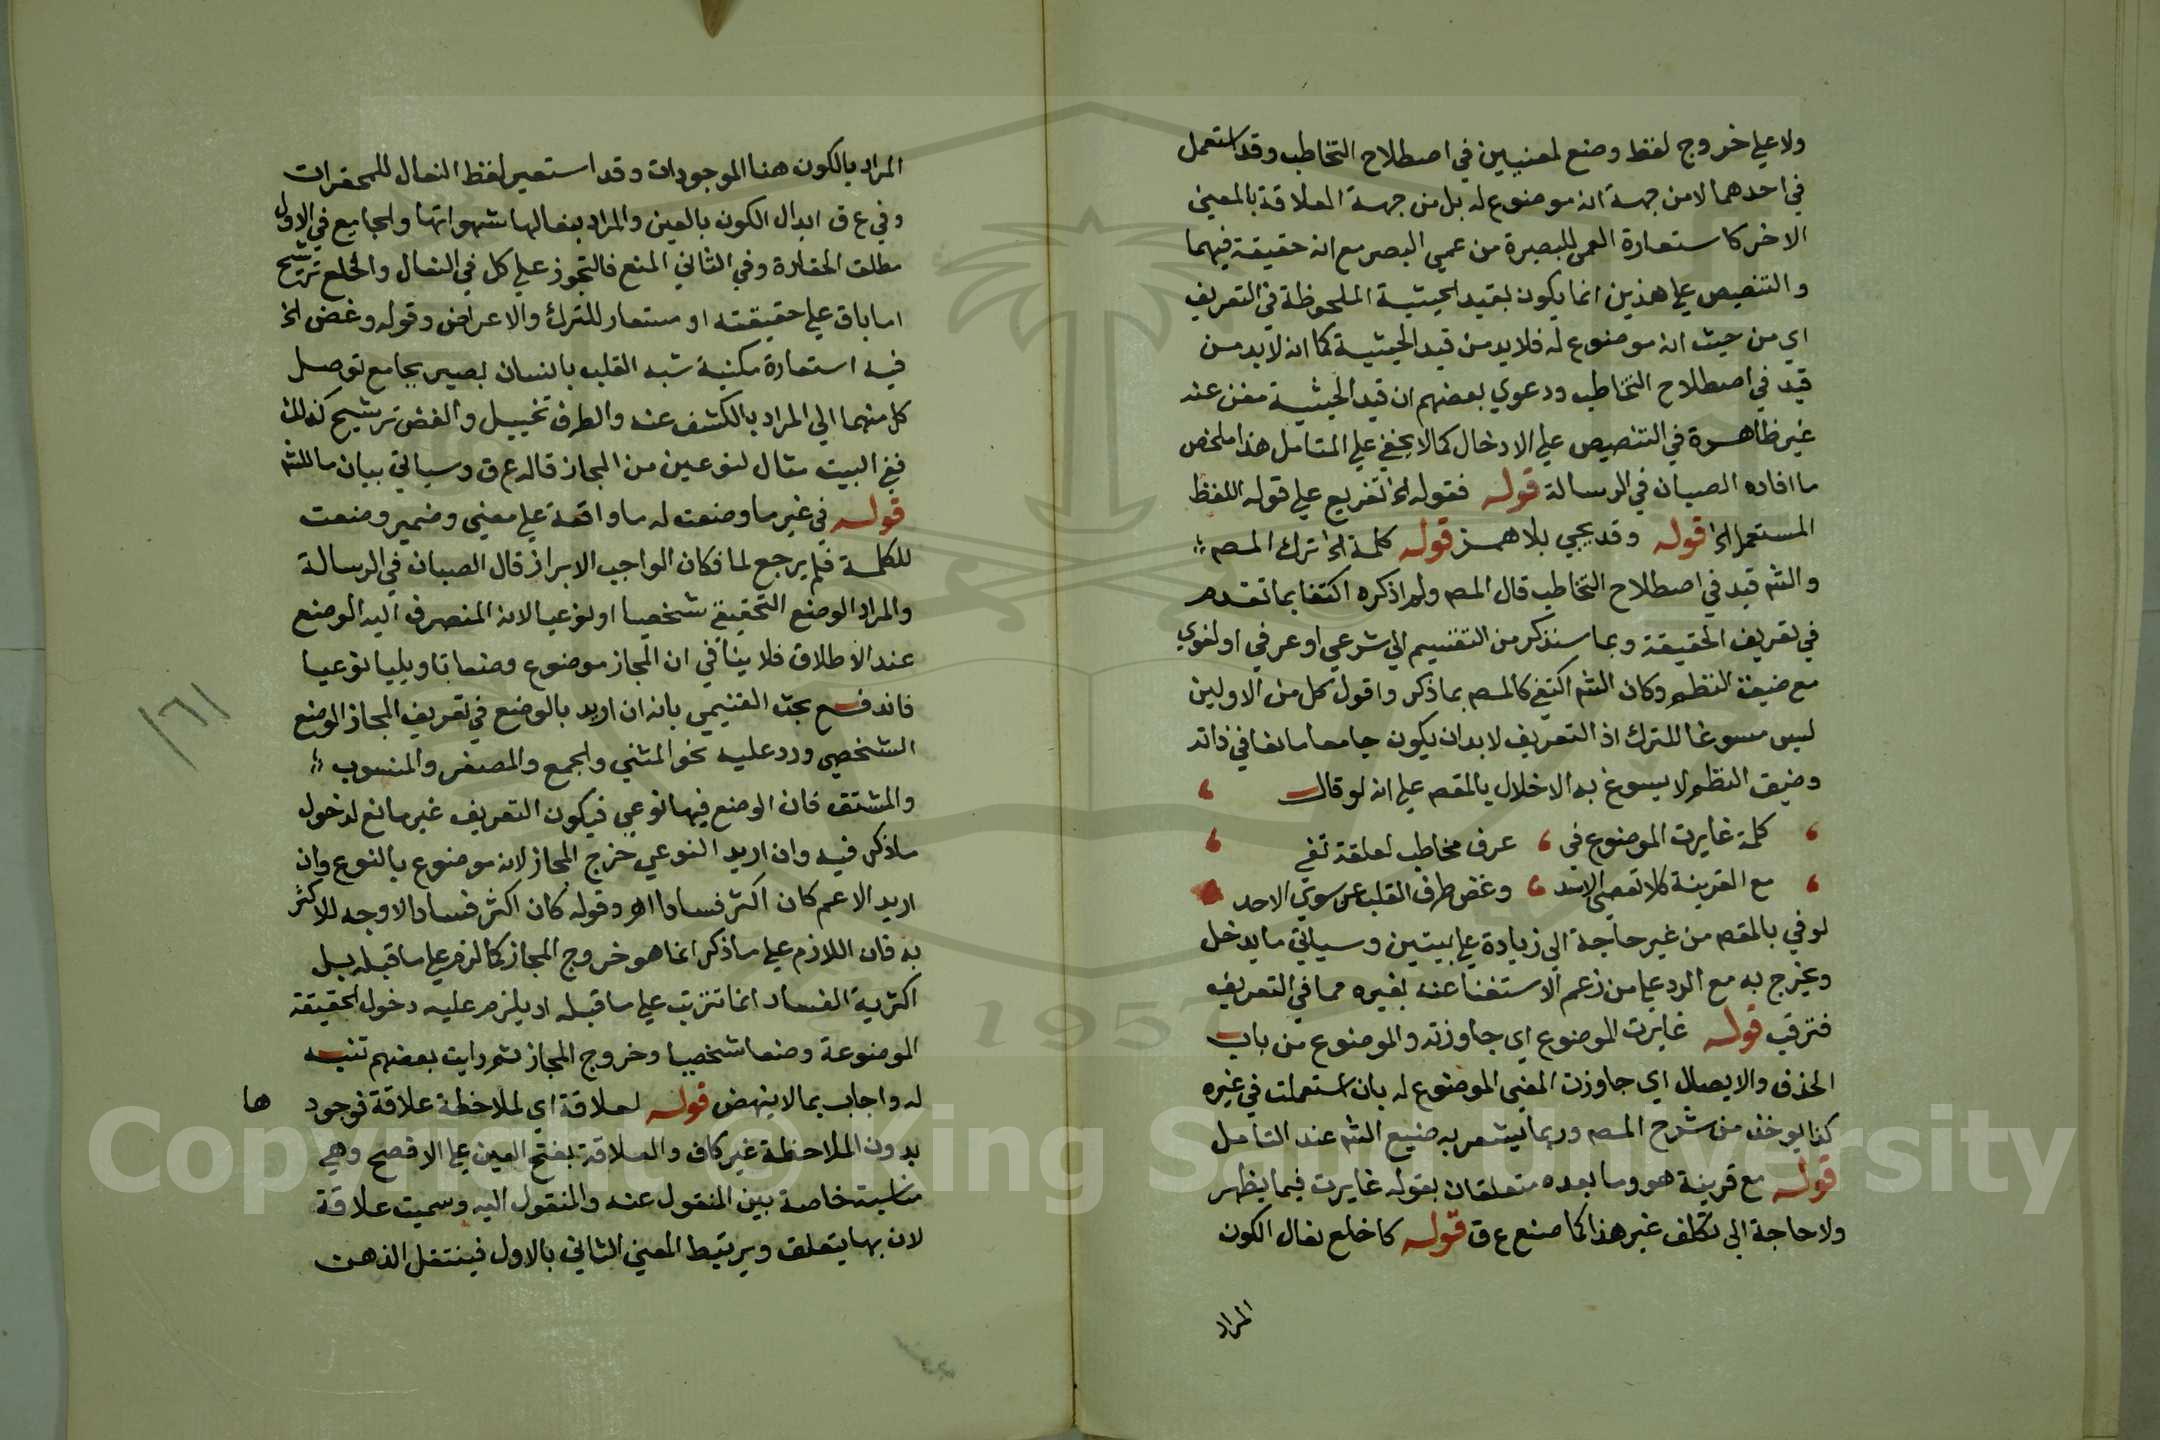 ولا علي خروج لفظ وضع لمعنيين في اصطلاح التخاطب وقد استعمل
في احدهما لا من جهة انه موضوع له بل من جهة العلاقة بالمعنى
الاخر كاستعارة العمى للبصيرة من عمى البصر مع انه حقيقة فيهما
والتنصيص علي هذين انما يكون بقيد الحيثية الملحوظة في التعريف
اي من حيث انه موضوع له فلا بد من قيد الحيثية كما انه لا بد من
قيد في اصطلاح التخاطب ودعوي بعضهم ان قيد الحيثية مغن عنه
غير ظاهرة في التنصيص علي الادخال كما لا يخفي علي المتامل هذا ملخص
ما افاده الصبان في الرسالة قوله فقوله الخ تفريع علي قوله اللفظ
المستعمل الخ قوله وقد يجي بلا همز قوله كلمة الخ ترك المصم
والشم قيد في اصطلاح التخاطب قال المصم ولم اذكره اكتفا بما تقدم
في تعريف الحقيقة وبما سنذكر من التقسيم الي شرعي او عرفي او لغوي
مع ضيق النظم وكان الشم اكتفي كالمصم بما ذكر واقول كل من الاولين
ليس مسوغا للترك اذ التعريف لا بد ان يكون جامعا مانعا في ذاته
وضيق النظم لا يسوغ به الاخلال بالمقصم علي انه لو قال
كلمة غايرت الموضوع في عرف مخاطب لعلقة تفي
مع القرينة كلا تعصي الاسد وغض طرف القلب عن سوي الاحد
لوفي بالمقصم من غير حاجة الي زيادة علي بيتين وسياتي ما يدخل
ويخرج به مع الرد علي من زعم الاستغنا عنه بغيره مما في التعريف
فترقب قوله غايرت الموضوع اي جاوزته والموضوع من باب
الحذف والايصال اي جاوزت المعنى الموضوع له بان استعملت في غيره
كذا يوخذ من شرح المصم وربما يشعر به صنيع الشم عند التامل
قوله مع قرينة هو وما بعده متعلقان بقوله غايرت فيما يظهر
ولا حاجة الي تكلف غير هذا كما صنع ع ق قوله كاخلع نعال الكون
المراد
المراد بالكون هنا الموجودات وقد استعير لفظ النعال للمحقرات
وفي ع ق ابدال الكون بالعين والمراد بنعالها شهواتها والجامع في الاول
مطلق الحقارة وفي الثاني المنع فالتجوز علي كل في النعال والخلع ترشيح
اما باق علي حقيقته او مستعار للترك والاعراض وقوله وغض الخ
فيه استعارة مكنية شبه القلب بانسان بصير بجامع توصل
كل منهما الي المراد بالكشف عنه والطرف تخييل والغض ترشيح كذلك
ففي البيت مثال لنوعين من المجاز قاله ع ق وسياتي بيان ما للشم
قوله في غير ما وضعت له ما واقعة علي معنى وضمير وضعت
للكلمة فلم يرجع لما فكان الواجب الابراز قال الصبان في الرسالة
والمراد الوضع التحقيقي شخصيا او نوعيا لانه المنصرف اليه الوضع
عند الاطلاق فلا ينافي ان المجاز موضوع وضعا تاويليا نوعيا
فاندفع بحث الغنيمي بانه ان اريد بالوضع في تعريف المجاز الوضع
الشخصي ورد عليه نحو المثني والجمع والمصغر والمنسوب
والمشتق فان الوضع فيها نوعي فيكون التعريف غير مانع لدخول
ما ذكر فيه وان اريد النوعي خرج المجاز لانه موضوع بالنوع وان
اريد الاعم كان اكثر فسادا اهر وقوله كان اكثر فسادا لا وجه للاكثر
به فان اللازم علي ما ذكر انما هو خروج المجاز كما لزم علي ما قبله بل
اكثرية الفساد انما تترتب علي ما قبله اد يلزم عليه دخول الحقيقة
الموضوعة وضعا شخصيا وخروج المجاز ثم رايت بعضهم تنبه
له واجاب بما لا ينهض قوله لعلاقة اي لملاحظة علاقة فوجود ها
بدون الملاحظة غير كاف والعلاقة بفتح العين علي الافصح وهي
مناسبة خاصة بين المنقول عنه والمنقول اليه وسميت علاقة
لان بها يتعلق ويرتبط المعني الثاني بالاول فينتقل الذهن
١٦١
1957
Copyright © King Saud University